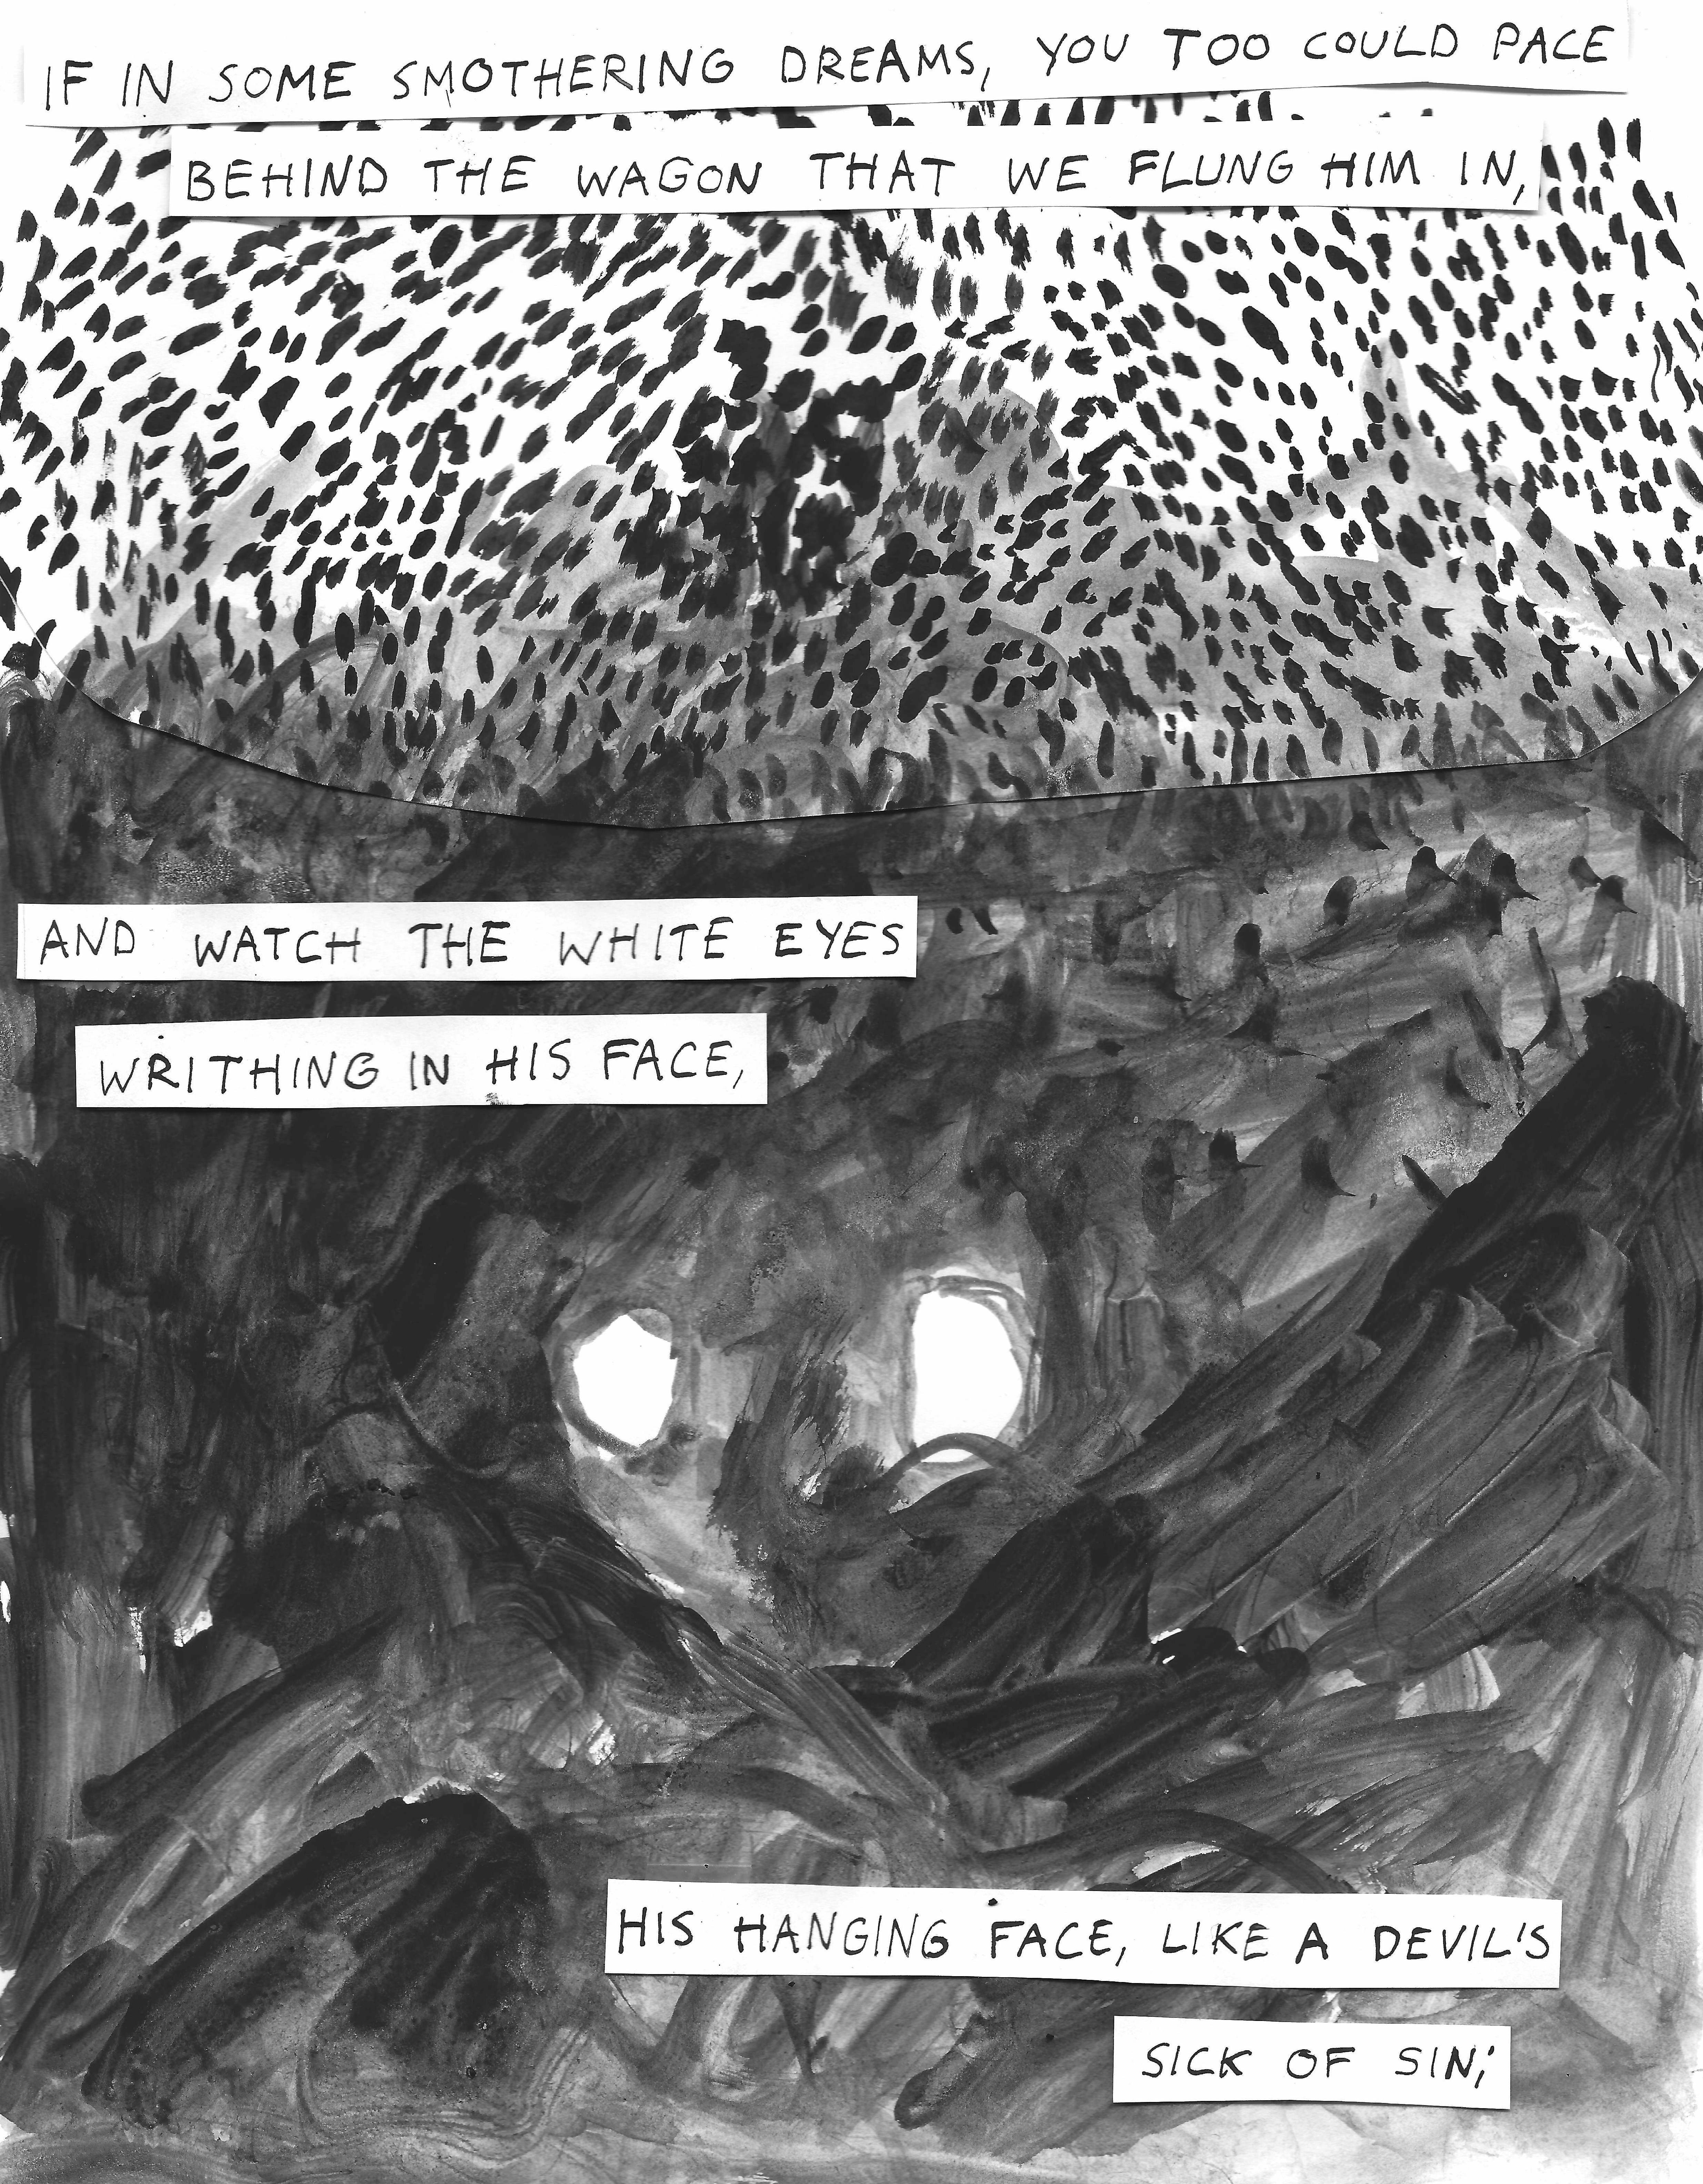 IF IN SOME SMOTHERING DREAMS, YOU TOO COULD PACE
BEHIND THE WAGON THAT WE FLUNG HIM IN,
AND WATCH THE WHITE EYES
WRITHING IN HIS FACE,
HIS HANGING FACE, LIKE A DEVIL'S
SICK OF SIN;